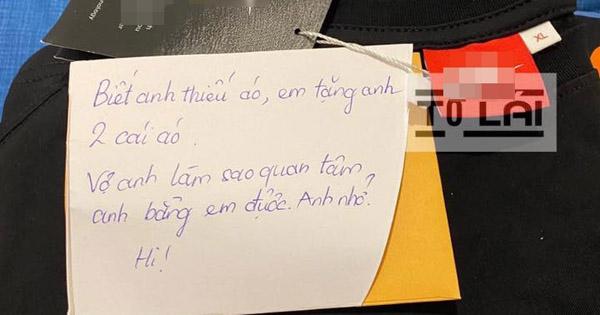 XL
TU LÀI
Biết anh thiếu áo, em tặng anh
2 cái áo.
Vợ anh làm sao quan tâm
anh bằng em được. Anh nhỉ?
Hi!